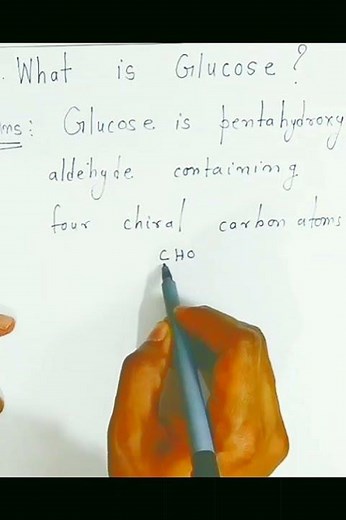 . What is Glucose ?
ms : Glucose is pentahydroxy
aldehyde containing
four chiral carbon atoms
CHO